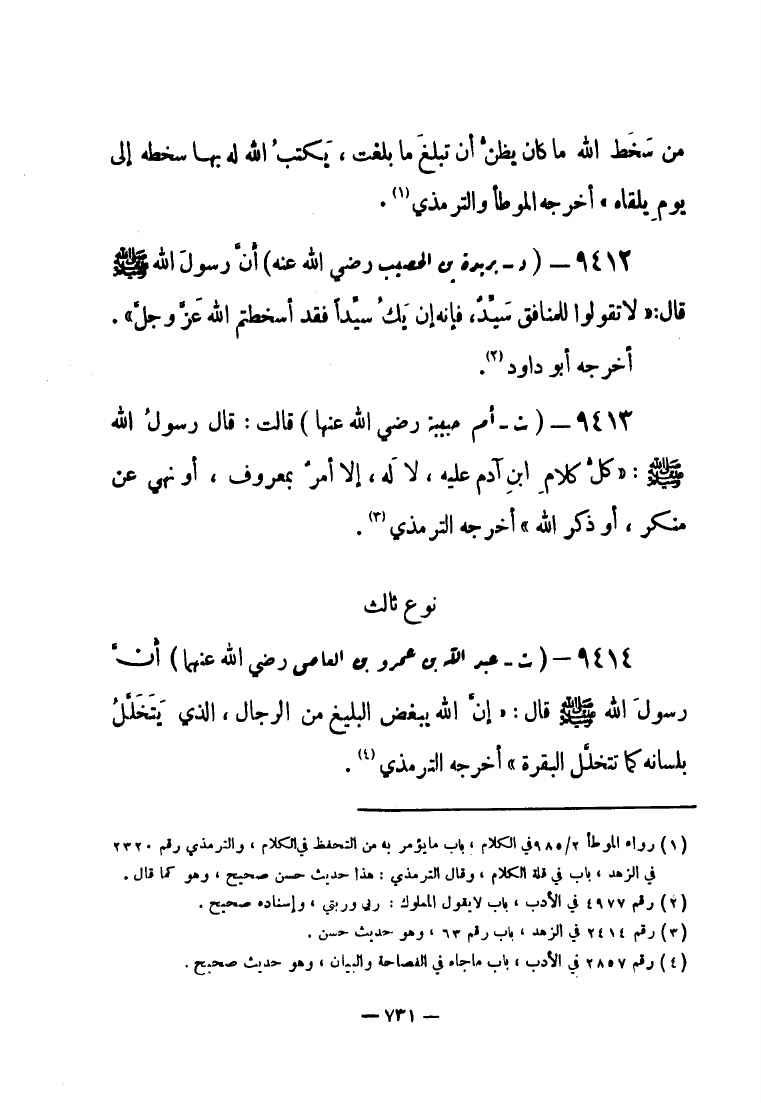 من سَخَط الله ما كان يظنّ أن تبلغَ ما بلغت ، يَكتبُ الله له بها سخطه إلى
يومِ يلقاه » أخرجه الموطأ والترمذي (١) .
٩٤١٢ — ( د - بريدة بن الحصيب رضي الله عنه ) أنَّ رسولَ الله ﷺ
قال: « لا تقولوا للمنافق سَيِّدٌ، فإنه إن يَكُ سيِّداً فقد أسخطتم الله عَزَّ وجلَّ» .
أخرجه أبو داود (٢).
٩٤١٣ — ( ت - أم حبيبة رضي الله عنها ) قالت : قال رسولُ الله
ﷺ : « كلُّ كلامِ ابنِ آدم عليه ، لا لَه ، إلا أمرٌ بمعروف ، أو نهي عن
منكر ، أو ذكر الله » أخرجه الترمذي (٣) .
نوع ثالث
٩٤١٤ — ( ت - عبد الله بن عمرو بن العاص رضي الله عنهما ) أنَّ
رسولَ الله ﷺ قال : « إنَّ الله يبغض البليغ من الرجال ، الذي يَتَخَلَّلُ
بلسانه كما تتخلَّل البقرة » أخرجه الترمذي (٤) .
(١) رواه الموطأ ٩٨٥/٢ في الكلام ، باب مايؤمر به من التحفظ في الكلام ، والترمذي رقم ٢٣٢٠
في الزهد ، باب في قلة الكلام ، وقال الترمذي : هذا حديث حسن صحيح ، وهو كما قال .
(٢) رقم ٤٩٧٧ في الأدب ، باب لايقول المملوك : ربي وربتي ، وإسناده صحيح .
(٣) رقم ٢٤١٤ في الزهد ، باب رقم ٦٣ ، وهو حديث حسن .
(٤) رقم ٢٨٥٧ في الأدب ، باب ماجاء في الفصاحة والبيان ، وهو حديث صحيح .
— ٧٣١ —